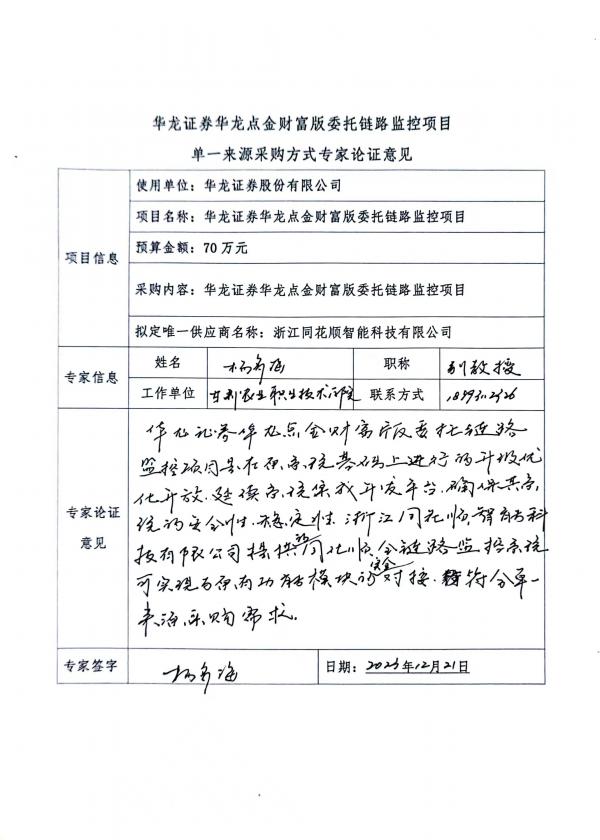 华龙证券华龙点金财富版委托链路监控项目
单一来源采购方式专家论证意见
项目信息
使用单位：华龙证券股份有限公司
项目名称：华龙证券华龙点金财富版委托链路监控项目
预算金额：70万元
采购内容：华龙证券华龙点金财富版委托链路监控项目
拟定唯一供应商名称：浙江同花顺智能科技有限公司
专家信息
姓名
职称 副教授
工作单位 甘肃农业职业技术学院
联系方式
专家论证
意见
华龙证券华龙点金财富版委托链路
监控项目是在原系统基础上进行的升级优
化开放.延续系统保我开发平台.确保其系
统的安全性.稳定性.浙江同花顺智能科
技有限公司提供的同花顺全链路监控系统
可实现与原有功能模块的完全对接.符合单一
来源采购需求.
专家签字
日期：2023年12月21日